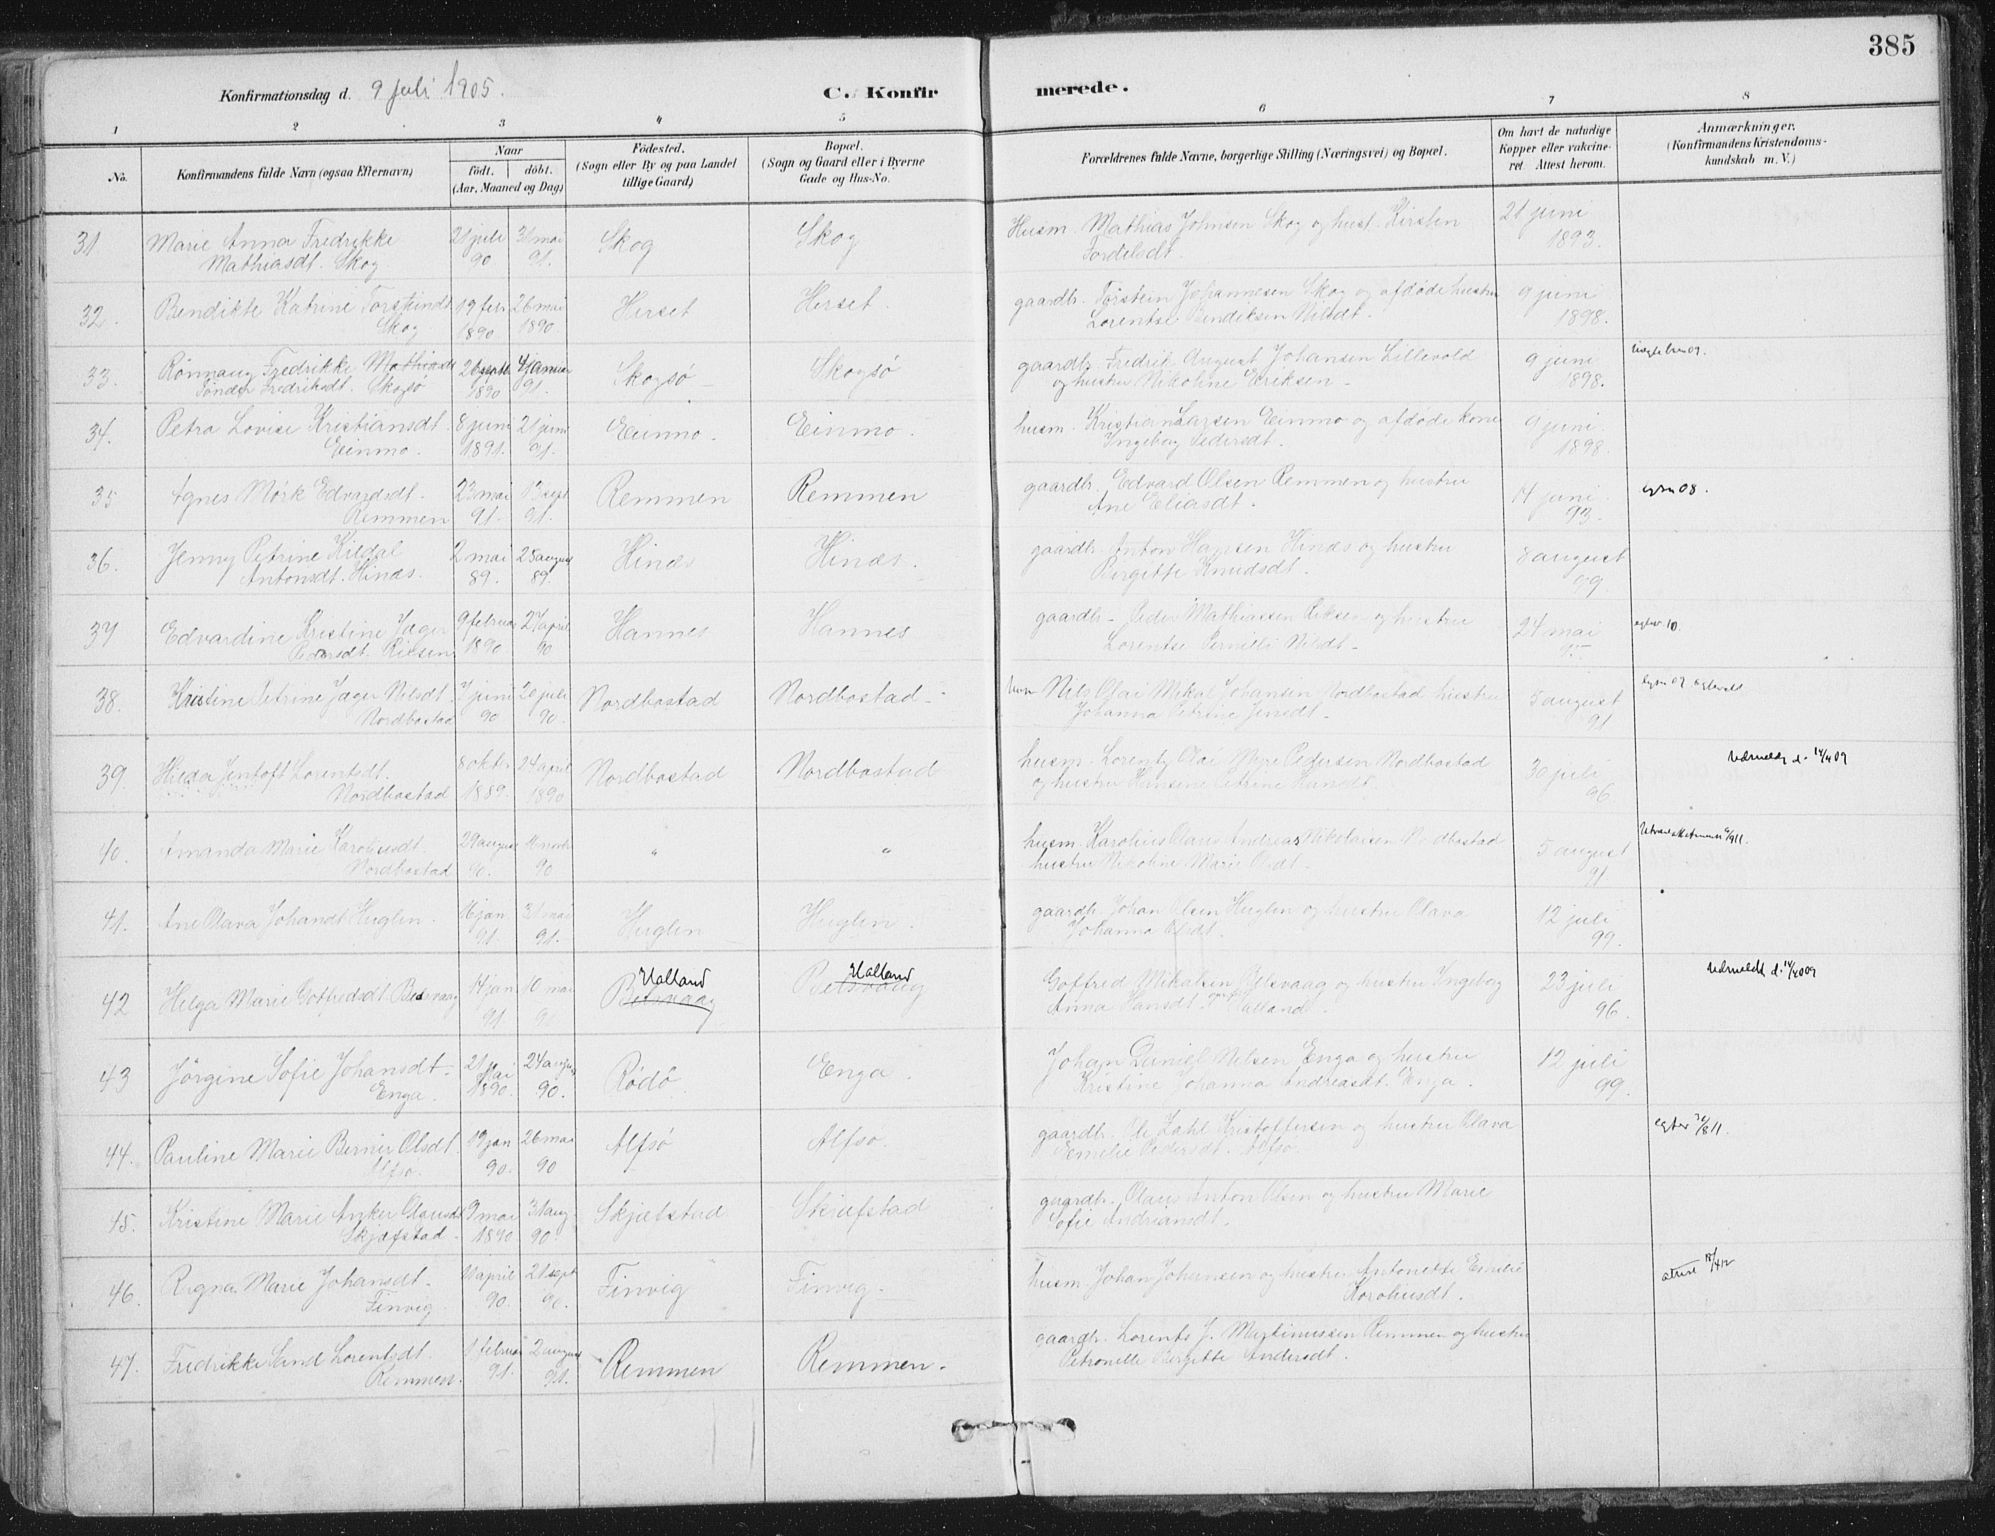 385
Konfirmationsdag d. 9 juli 1905.
C. Konfirmerede.
1 2 3 4 5 6 7 8
No.
Konfirmandens fulde Navn (ogsaa Efternavn)
Naar
födt. döbt.
(Aar, Maaned og Dag)
Födested.
(Sogn eller By og paa Landet
tillige Gaard)
Bopæl.
(Sogn og Gaard eller i Byerne
Gade og Hus-No.
Forældrenes fulde Navne, borgerlige Stilling (Næringsvei) og Bopæl.
Om havt de naturlige
Kopper eller vakcine-
ret Attest herom.
Anmærkninger.
(Konfirmandens Kristendoms-
kundskab m. V.)
31 Marie Anna Fredrikke 21 juli 31 mai Skog Skog Husm. Mathias Johnsen Skog og hust. Kirsten 21 juni
Mathiasdt. Skog 90 91. 1893.
32. Bendikte Katrine Torsteindt 19 febr 26 mai Herset Herset. gaardbr. Torstein Johannesen Skog og afdöde hustru 9 juni
Skog 1890 1890 Lorentse Bendiksen Nilsdt. 1898.
33. Rönnaug Fredrikke Mathiasdt Skogsö Skogsö gaardbr. Fredrik August Johansen Lillevold 9 juni
Fredriksdt. Skogsö 1890 91. og hustru Nikoline Eriksen 1898.
34. Petra Lovise Kristiansdt. 8 juni 21 juni Einmo. Einmo. husm. Kristian Larsen Einmo og afdöde kone 9 juni
Einmo. 1891. 91. Ingeborg Pedersdt. 1898
35 Agnes Mörk Edvardsdt. 23 mai 13 sept Remmen Remmen gaardbr. Edvard Olsen Remmen og hustru 14 juni
Remmen 91. 91. Ane Eliasdt. 93.
36. Jenny Petrine Kildal 2 mai 25 august Hinæs Hinæs. gaardbr. Anton Hansen Hinæs og hustru 8 august
Antonsdt. Hinæs. 89. 89. Birgitte Knudsdt. 99
37 Edvardine Kristine Jæger 9 februar 27 april Hannes Hannes gaardbr. Peder Mathiassen og hustru 24 mai
1890 90 Lorentse Nilsdt
38. Kristine Petrine Jæger Nilsdt. 7 juni 20 juli Nordbostad Nordbostad Nils Olai Mikal Johansen Nordbostad hustru 5 august
Nordbostad 90 90. Johanna Petrine Jensdt 91
39. Hilda Jentoft Lorentsdt. 8 oktbr 24 april Nordbostad Nordbostad husm. Lorentz Olai Myre Pedersen Nordbostad 30 juli Udmeldt d. 14/4 09
Nordbostad 1889. 1890 og hustru Hansine Petrine Hansdt. 96
40. Amanda Marie Karoliusdt. 29 august " " husm. Karolius Olaus Andreas Nikolaisen Nordbostad 5 august
Nordbostad 90. 90 hustru Nikoline Marie Olsdt. 91
41. Ane Olava Johandt Huglen. 16 jan. 31 mai Huglen Huglen. gaardbr. Johan Olsen Huglen og hustru Olava 12 juli
91 91. Johanna Olsdt. 99.
42 Helga Marie Gotfredsdt Betsvaag 14 jan 10 mai Halland Halland Gotfred Mikalsen Betsvaag og hustru Ingeborg 23 juli Udmeldt d. 14/4 09
91 Betsvaag Betsvaag Anna Hansdt. Halland. 96.
43 Jörgine Sofie Johansdt. 21 Mai 24 august Rödö Enga Johan Daniel Nilsen Enga og hustru 12 juli
Enga. 1890. 90. Kristine Johanna Andreasdt. Enga. 99.
44. Pauline Marie Berner Olsdt. 19 jan 26 mai Alfsö Alfsö. gaardbr. Ole Zahl Kristoffersen og hustru Olava
Alfsö. 90. 90 Emilie Pedersdt. Alfsö.
45. Kristine Marie Anker Olausdt 9 mai 31 aug Skjæfstad Skjæfstad gaardbr. Olaus Anton Olsen og hustru Marie
Skjæfstad 1890 90. Sofie Andriansdt.
46. Ragna Marie Johansdt. april 21 sept Finvig Finvig. husm. Johan Johansen og hustru Antonette Emilie
Finvig. 90. 90. Karoliusdt.
47. Fredrikke Sand Lorentsdt. 1 februar 2 august Remmen Remmen. gaardbr. Lorents J. Martinussen Remmen og hustru
Remmen. 91. 91. Petronelle Birgitte Andersdt.